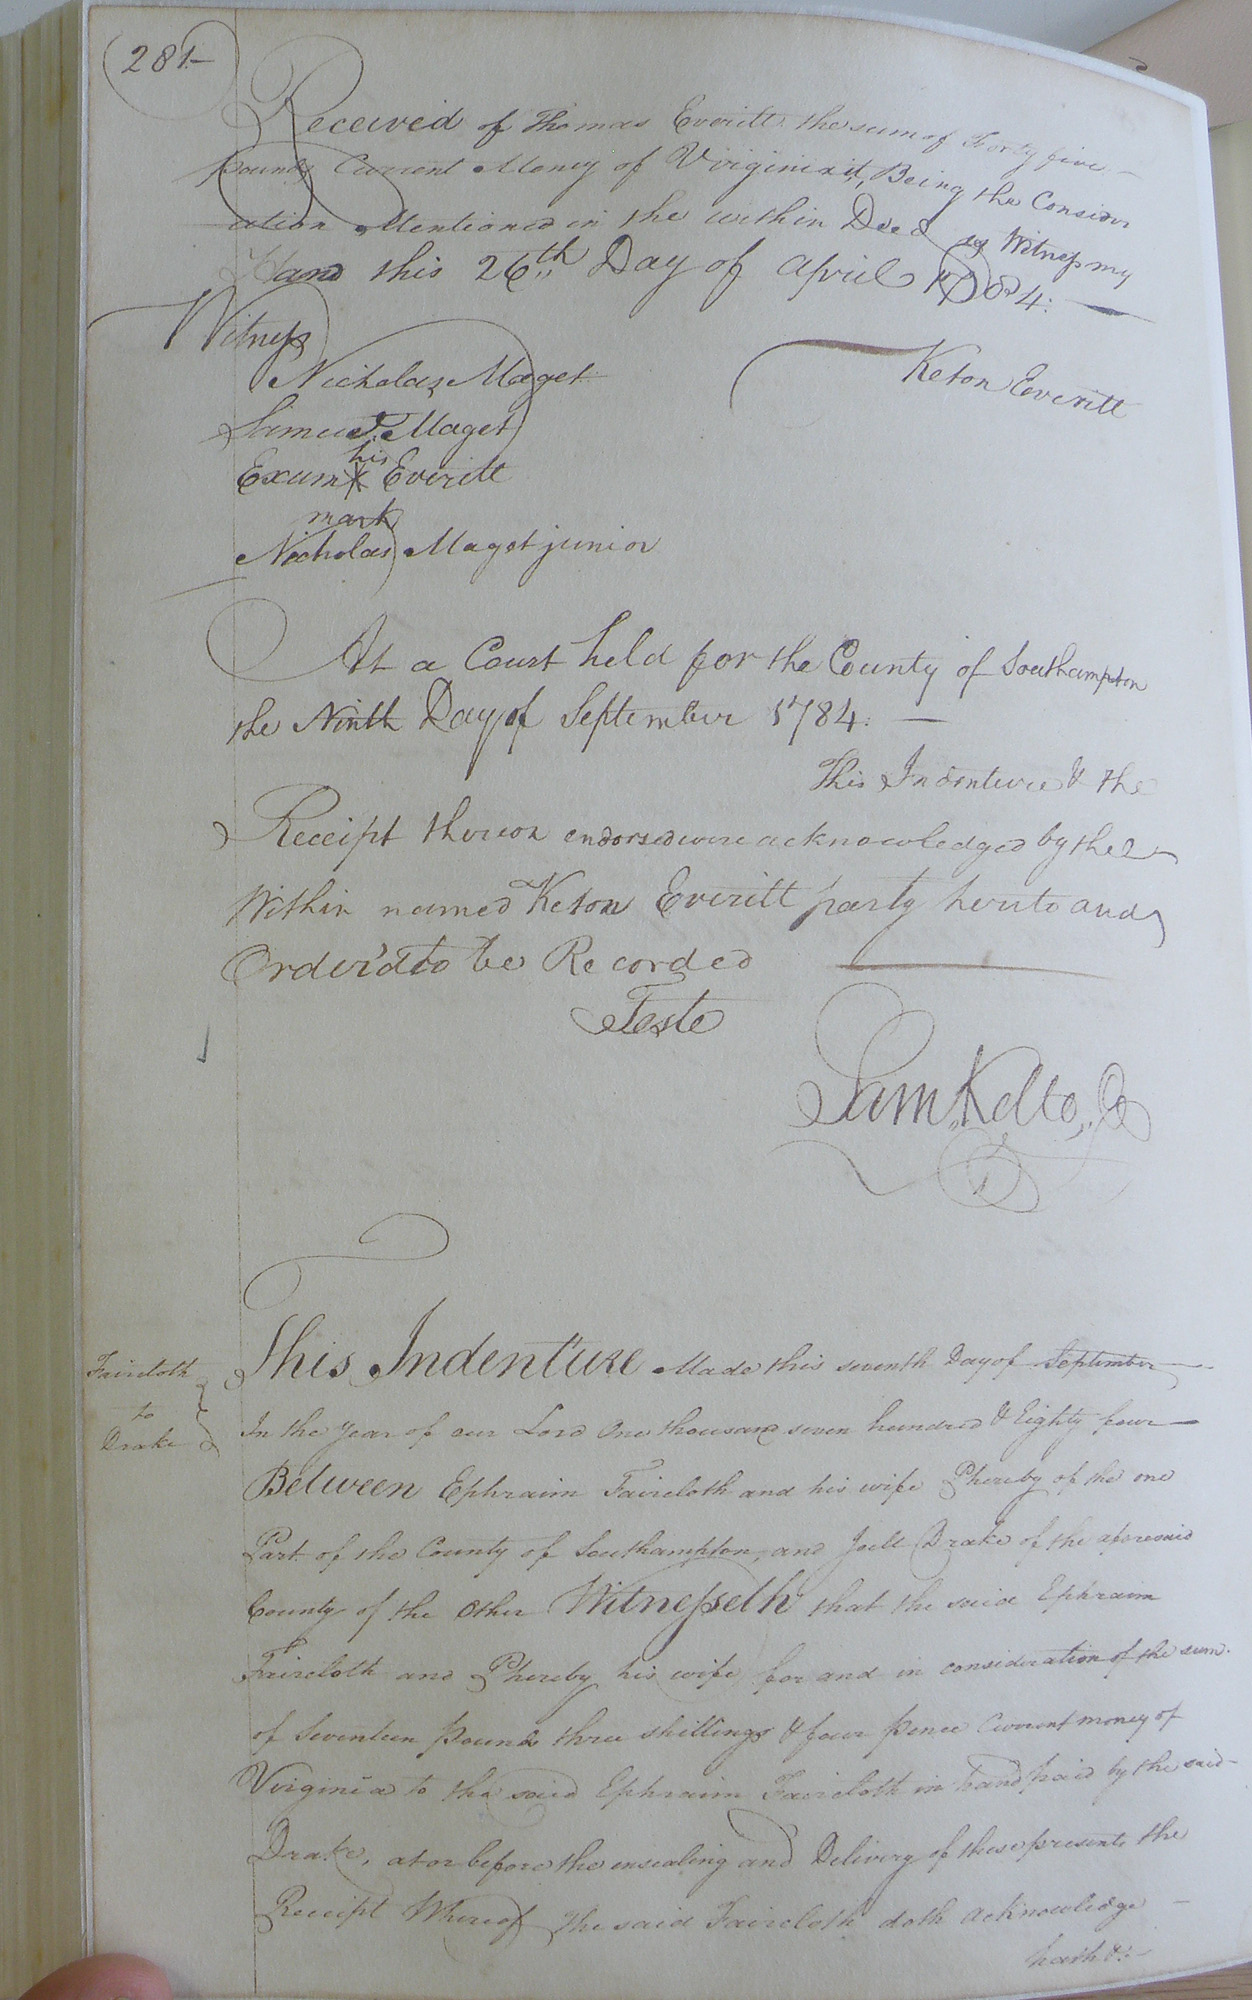 281
Received of Thomas Everitt the sum of Forty five
pounds Current Money of Virginia it, Being the Consider
ation Mentioned in the within Deed as Witness my
Hand this 26th Day of April 1784:
Witness
Keton Everitt
Nicholas Maget
Samuel Maget
his
Exum X Everitt
mark
Nicholas Maget junior
At a Court held for the County of Southampton
the Ninth Day of September 1784: —
This Indenture & the
Receipt thereon endorsed were acknowledged by the
Within named Keton Everitt party hereto and
Order'd to be Recorded
Teste
Sam. Kello,
Faircloth
to
Drake
This Indenture Made this seventh Day of September
In the Year of our Lord One thousand seven hundred & Eighty four
Between Ephraim Faircloth and his wife Phereby of the one
Part of the County of Southampton, and Joell Drake of the aforesaid
County of the Other Witnesseth that the said Ephraim
Faircloth and Phereby his wife for and in consideration of the sum
of Seventeen Pounds three shillings & four pence Current money of
Virginia to the said Ephraim Faircloth in hand paid by the said
Drake, at or before the ensealing and Delivery of these presents the
Receipt Whereof the said Faircloth doth acknowledge
hath &c